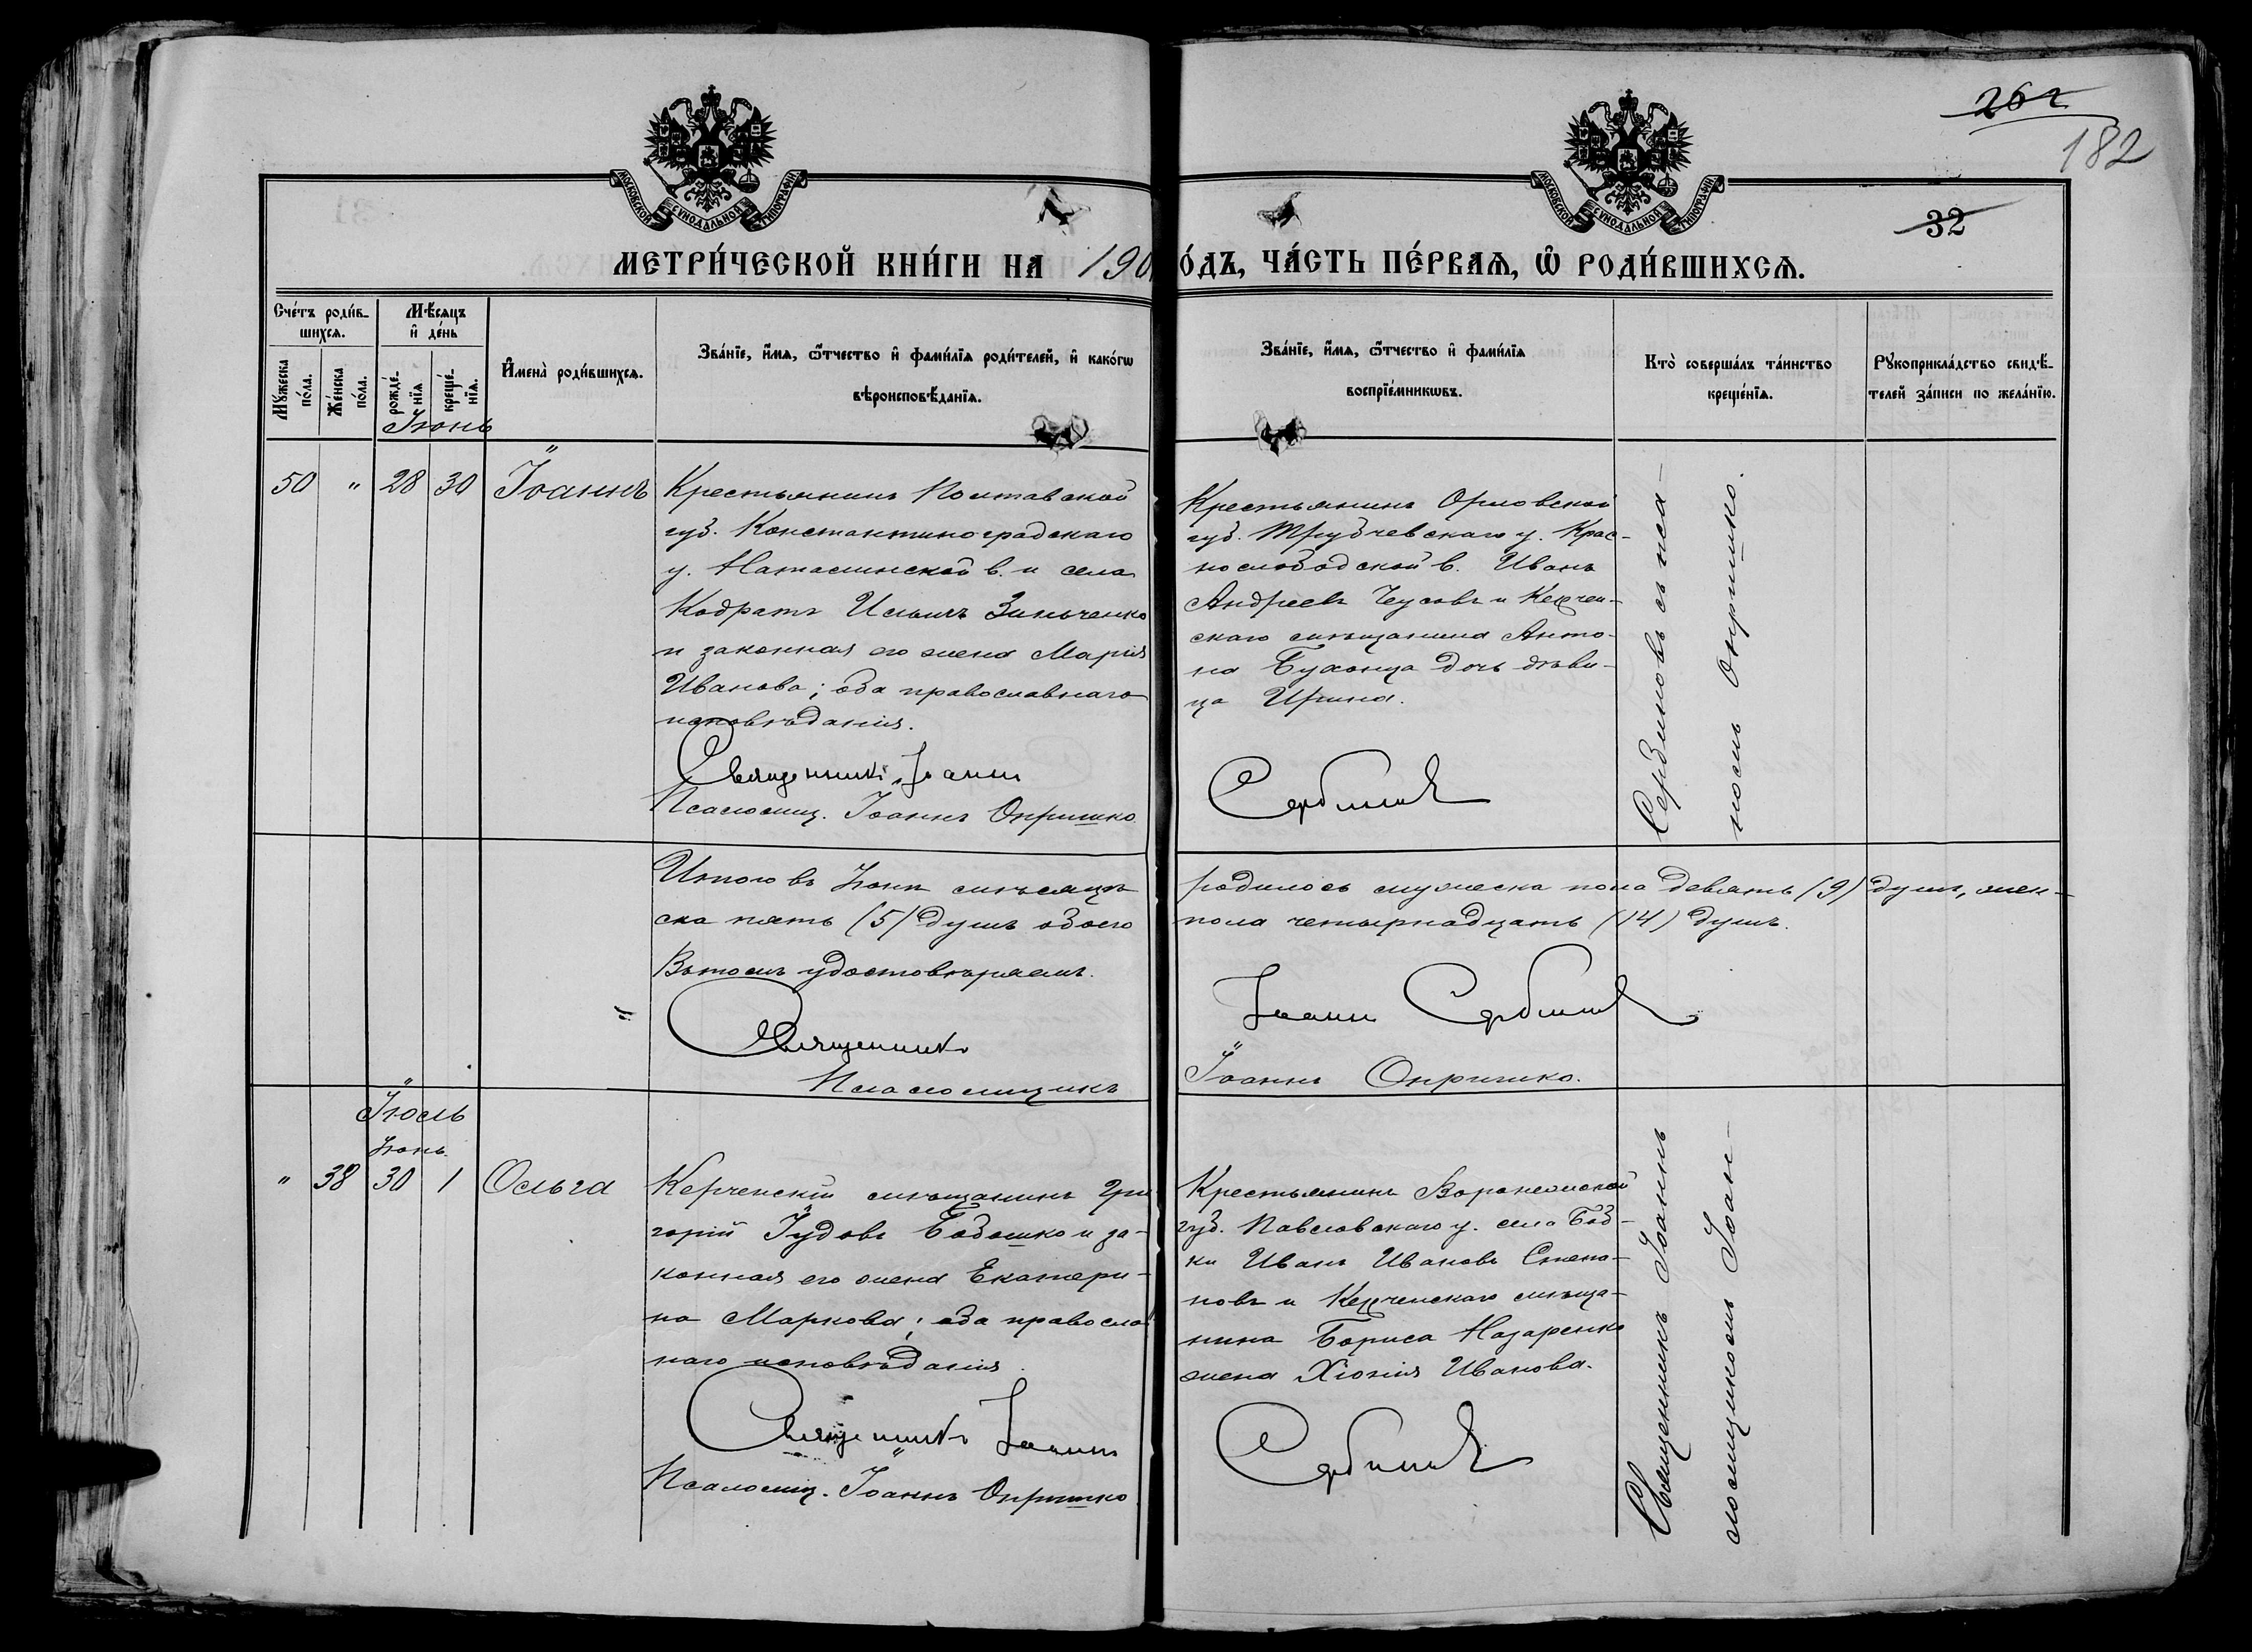 262
182
МОСКОВСКОЙ СѴНОДАЛЬНОЙ ТИПОГРАФІИ
МОСКОВСКОЙ СѴНОДАЛЬНОЙ ТИПОГРАФІИ
32
МЕТРИ́ЧЕСКОЙ КНИ́ГИ НА 190
О́ДЪ, ЧА́СТЬ ПЕ́РВАѦ, Ѿ РОДИ́ВШИХСѦ.
Сче́тъ роди́в-
шихсѧ.
Мꙋжеска по́ла.
Же́нска по́ла.
Мѣ́сѧцъ
и҆ де́нь
рожде́-
нїѧ
креще́-
нїѧ.
И҆мена̀ роди́вшихсѧ.
Зва́нїе, и҆́мѧ, ѻ҆́тчество и҆ фами́лїѧ роди́телей, и҆ како́гѡ
вѣроисповѣ́данїѧ.
Зва́нїе, и҆́мѧ, ѻ҆́тчество и҆ фами́лїѧ
воспрїе́мникѡвъ.
Кто̀ соверша́лъ та́инство
креще́нїѧ.
Рꙋкоприкла́дство свидѣ́-
телей за́писи по жела́нїю.
Іюнь
50 " 28 30 Іоаннъ
Крестьянинъ Полтавской
губ. Константиноградскаго
у. Наталинской в. и села
Кодратъ Ильичъ Зинченко
и законная его жена Марія
Иванова; оба православнаго
исповѣданія.
Священникъ Іоаннъ
Псаломщ. Іоаннъ Опришко
Крестьянинъ Орловской
губ. Трубчевскаго у. Крас-
нослободской в. Иванъ
Андреевъ Чусовъ и Керчен-
скаго мѣщанина Анто-
на дочь дѣви-
ца Ирина.
Сербиновъ
Сербиновъ съ пса-
номъ Опришко.
Итого въ Іюнѣ мѣсяцѣ
родилось мужеска пола девять (9) душъ, жен-
ска пять (5) душъ обоего
пола четырнадцать (14) душъ.
Въ томъ удостовѣряемъ.
Священникъ
Іоаннъ Сербиновъ
Псаломщикъ
Іоаннъ Опришко.
Іюль
Іюнь
" 38 30 1 Ольга
Керченскій мѣщанинъ Гри
горій Іудовъ и за-
конная его жена Екатери-
на Маркова; оба православ
наго исповѣданія.
Священникъ Іоаннъ
Псаломщ. Іоаннъ Опришко
Крестьянинъ Воронежской
губ. Павловскаго у. села
Иванъ Ивановъ Степа-
новъ и Керченскаго мѣща-
нина Бориса Назаренко
жена Хіонія Иванова.
Сербиновъ
Священникъ Іоаннъ
ломщикомъ Іоан-